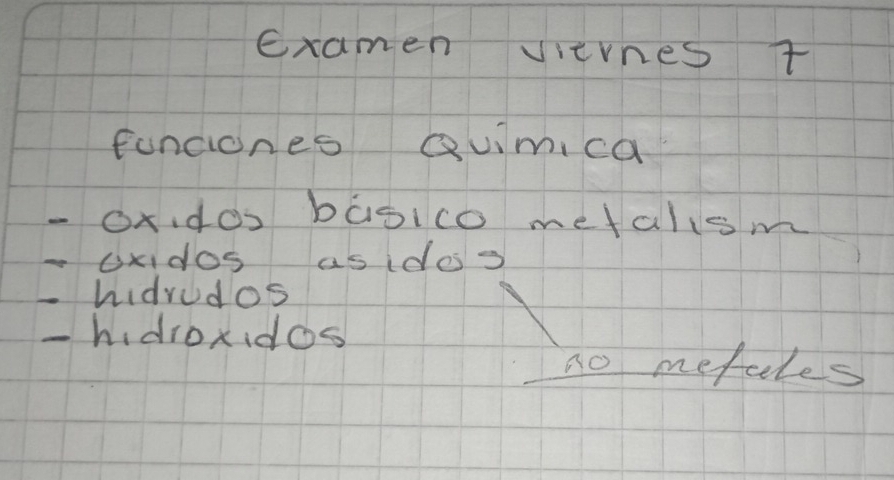 Examen viernes 7
funciones Quimica
- oxidos básico metalism
- oxidos asidos
- hidrudos
- hidroxidos
no metales